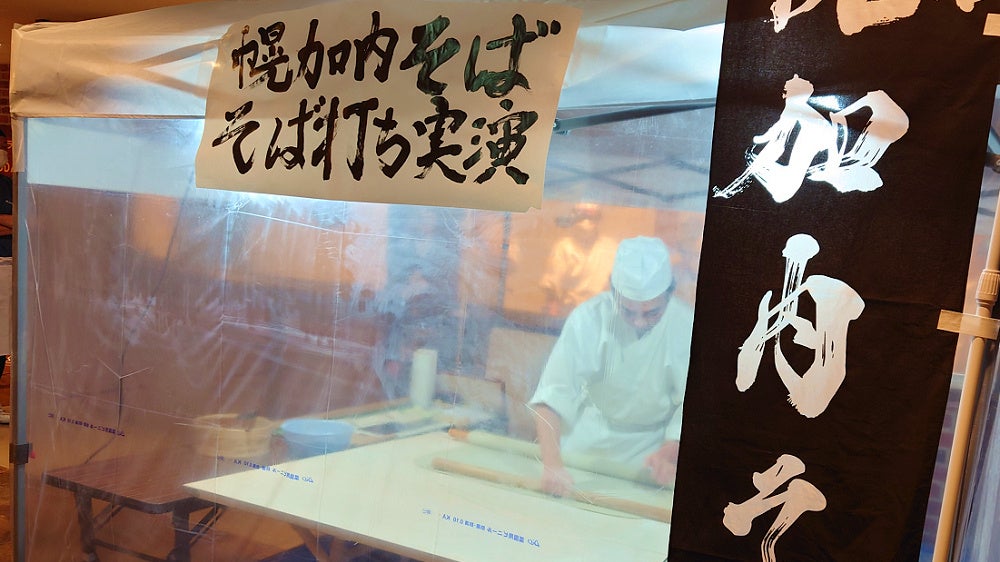 幌加内そば
そば打ち実演
加内そ